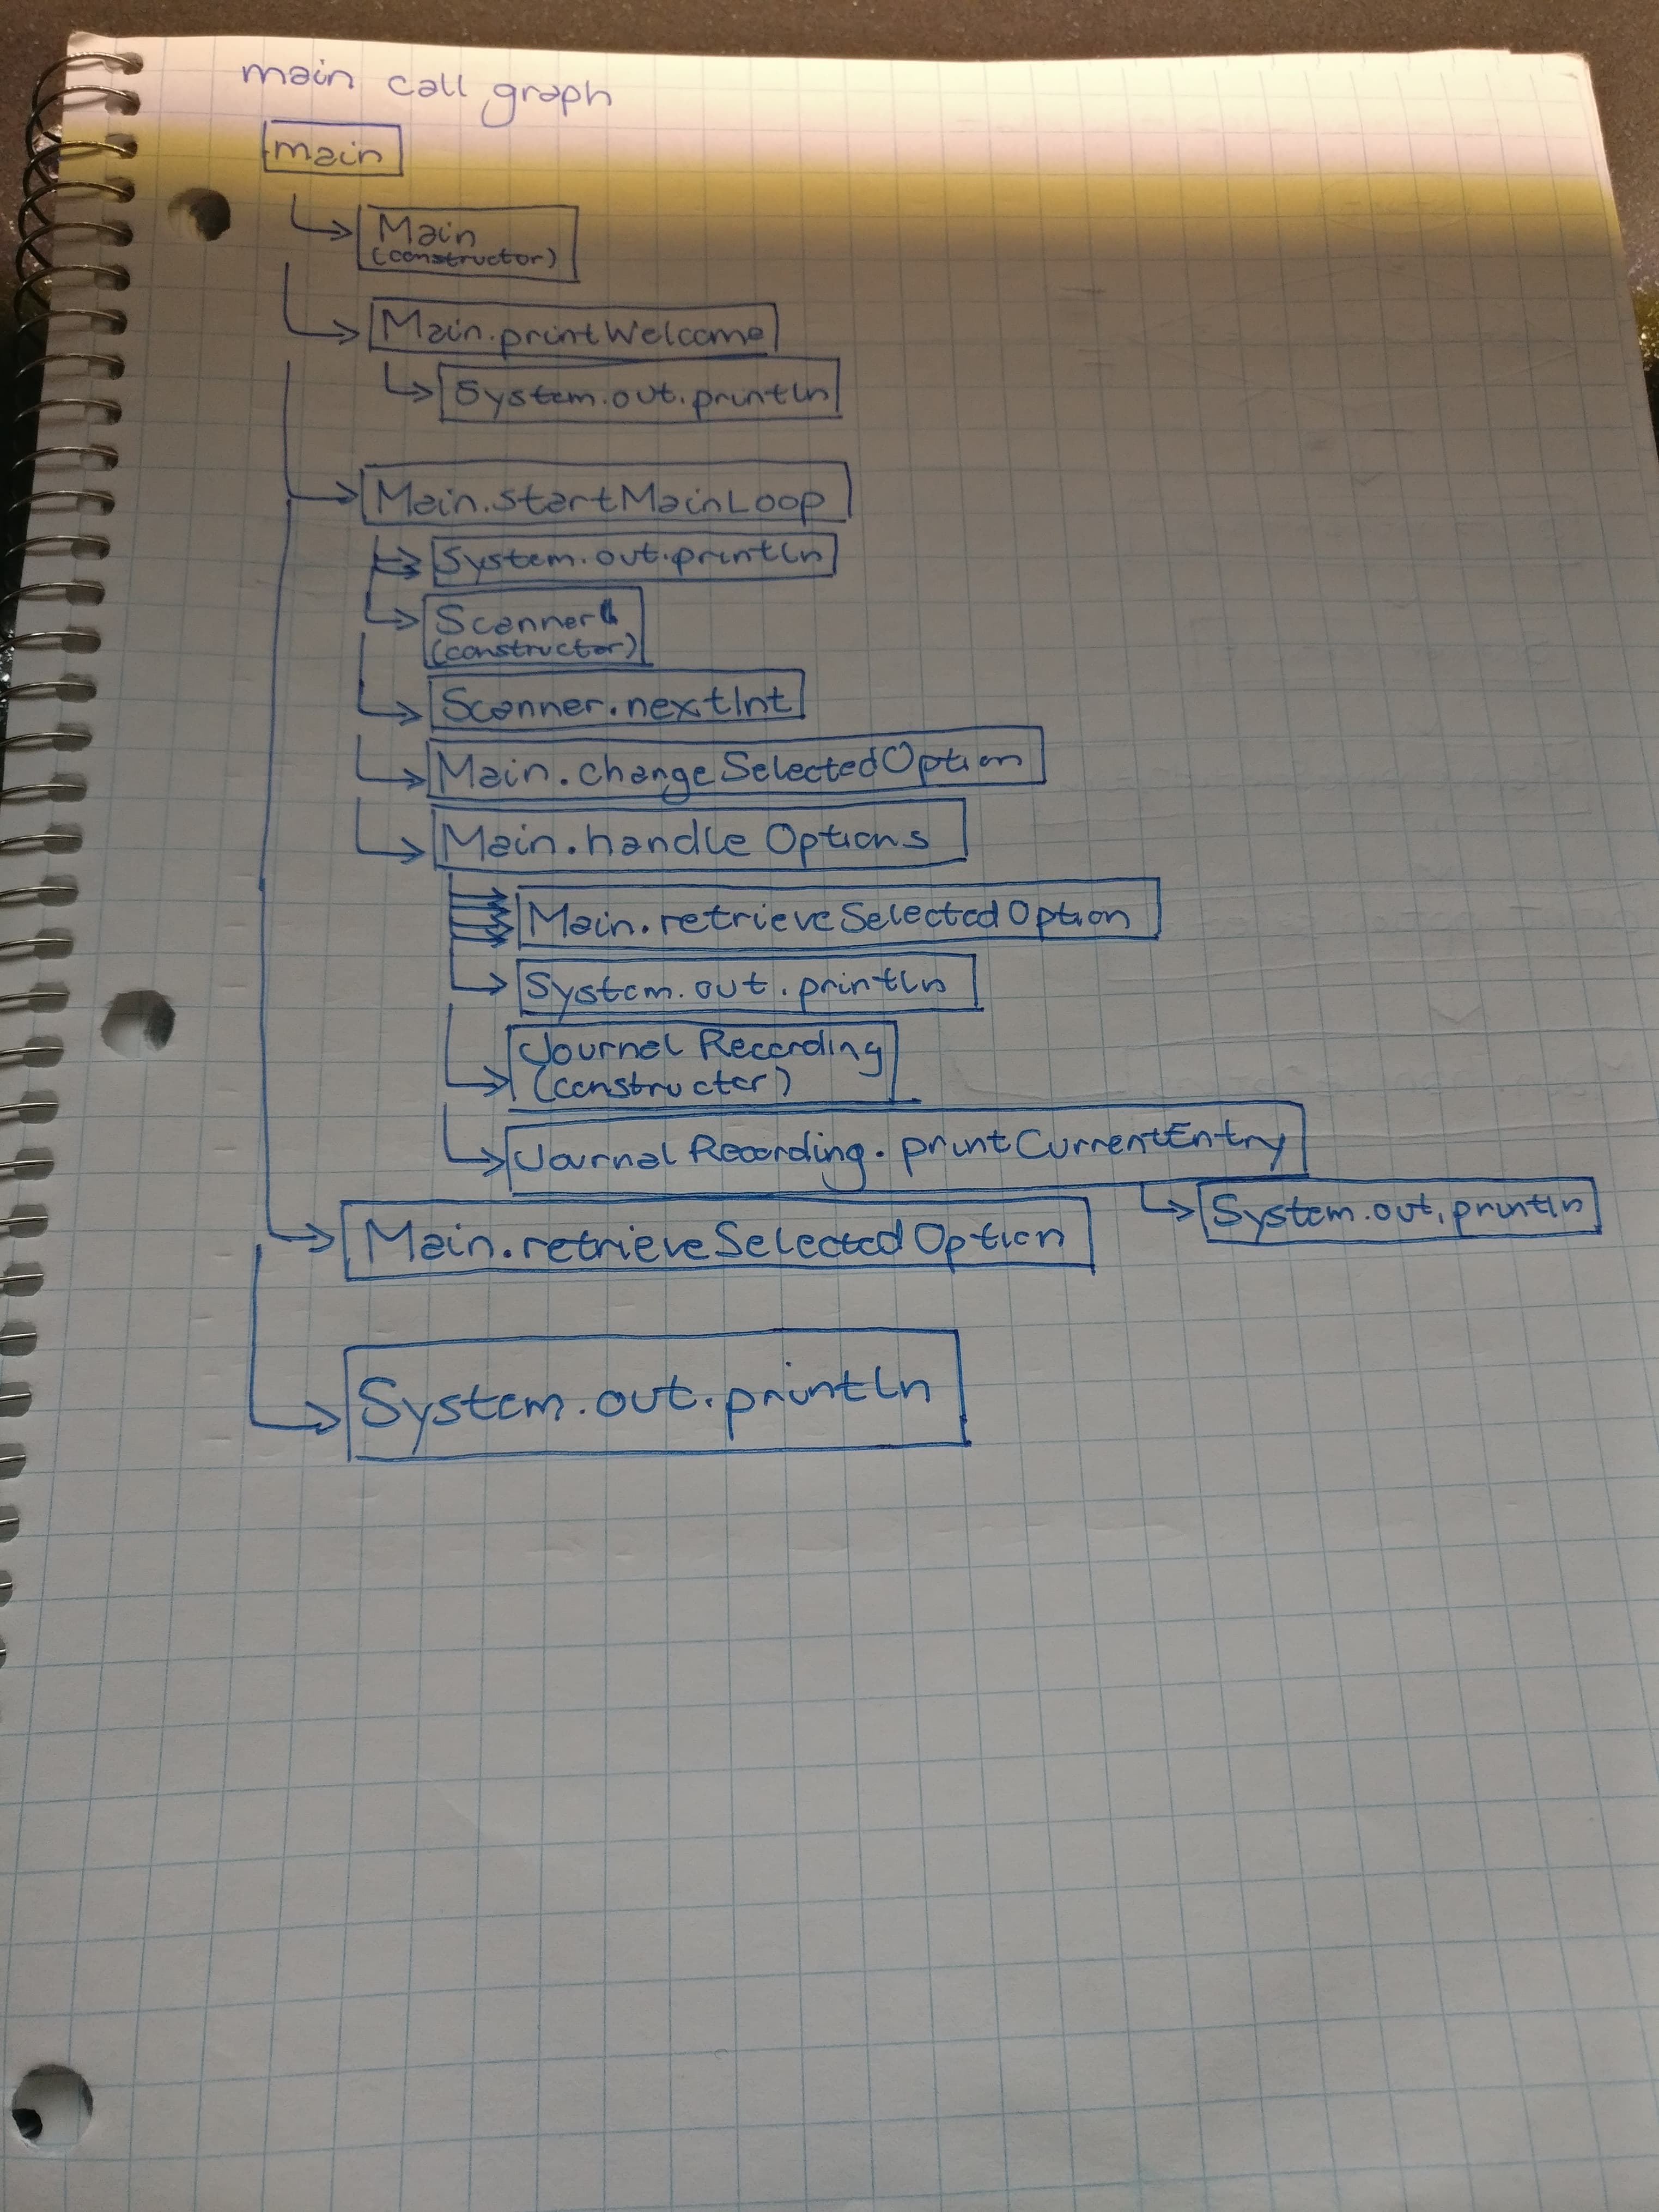 main call graph
main
Main
(constructor)
Main.printWelcome
System.out.println
Main.startMainLoop
System.out.println
Scanner
(constructor)
Scanner.nextInt
Main.changeSelectedOption
Main.handle Options
Main.retrieveSelectedOption
System.out.println
Journal Recording
(constructor)
Journal Recording.printCurrentEntry
System.out.println
Main.retrieveSelectedOption
System.out.println